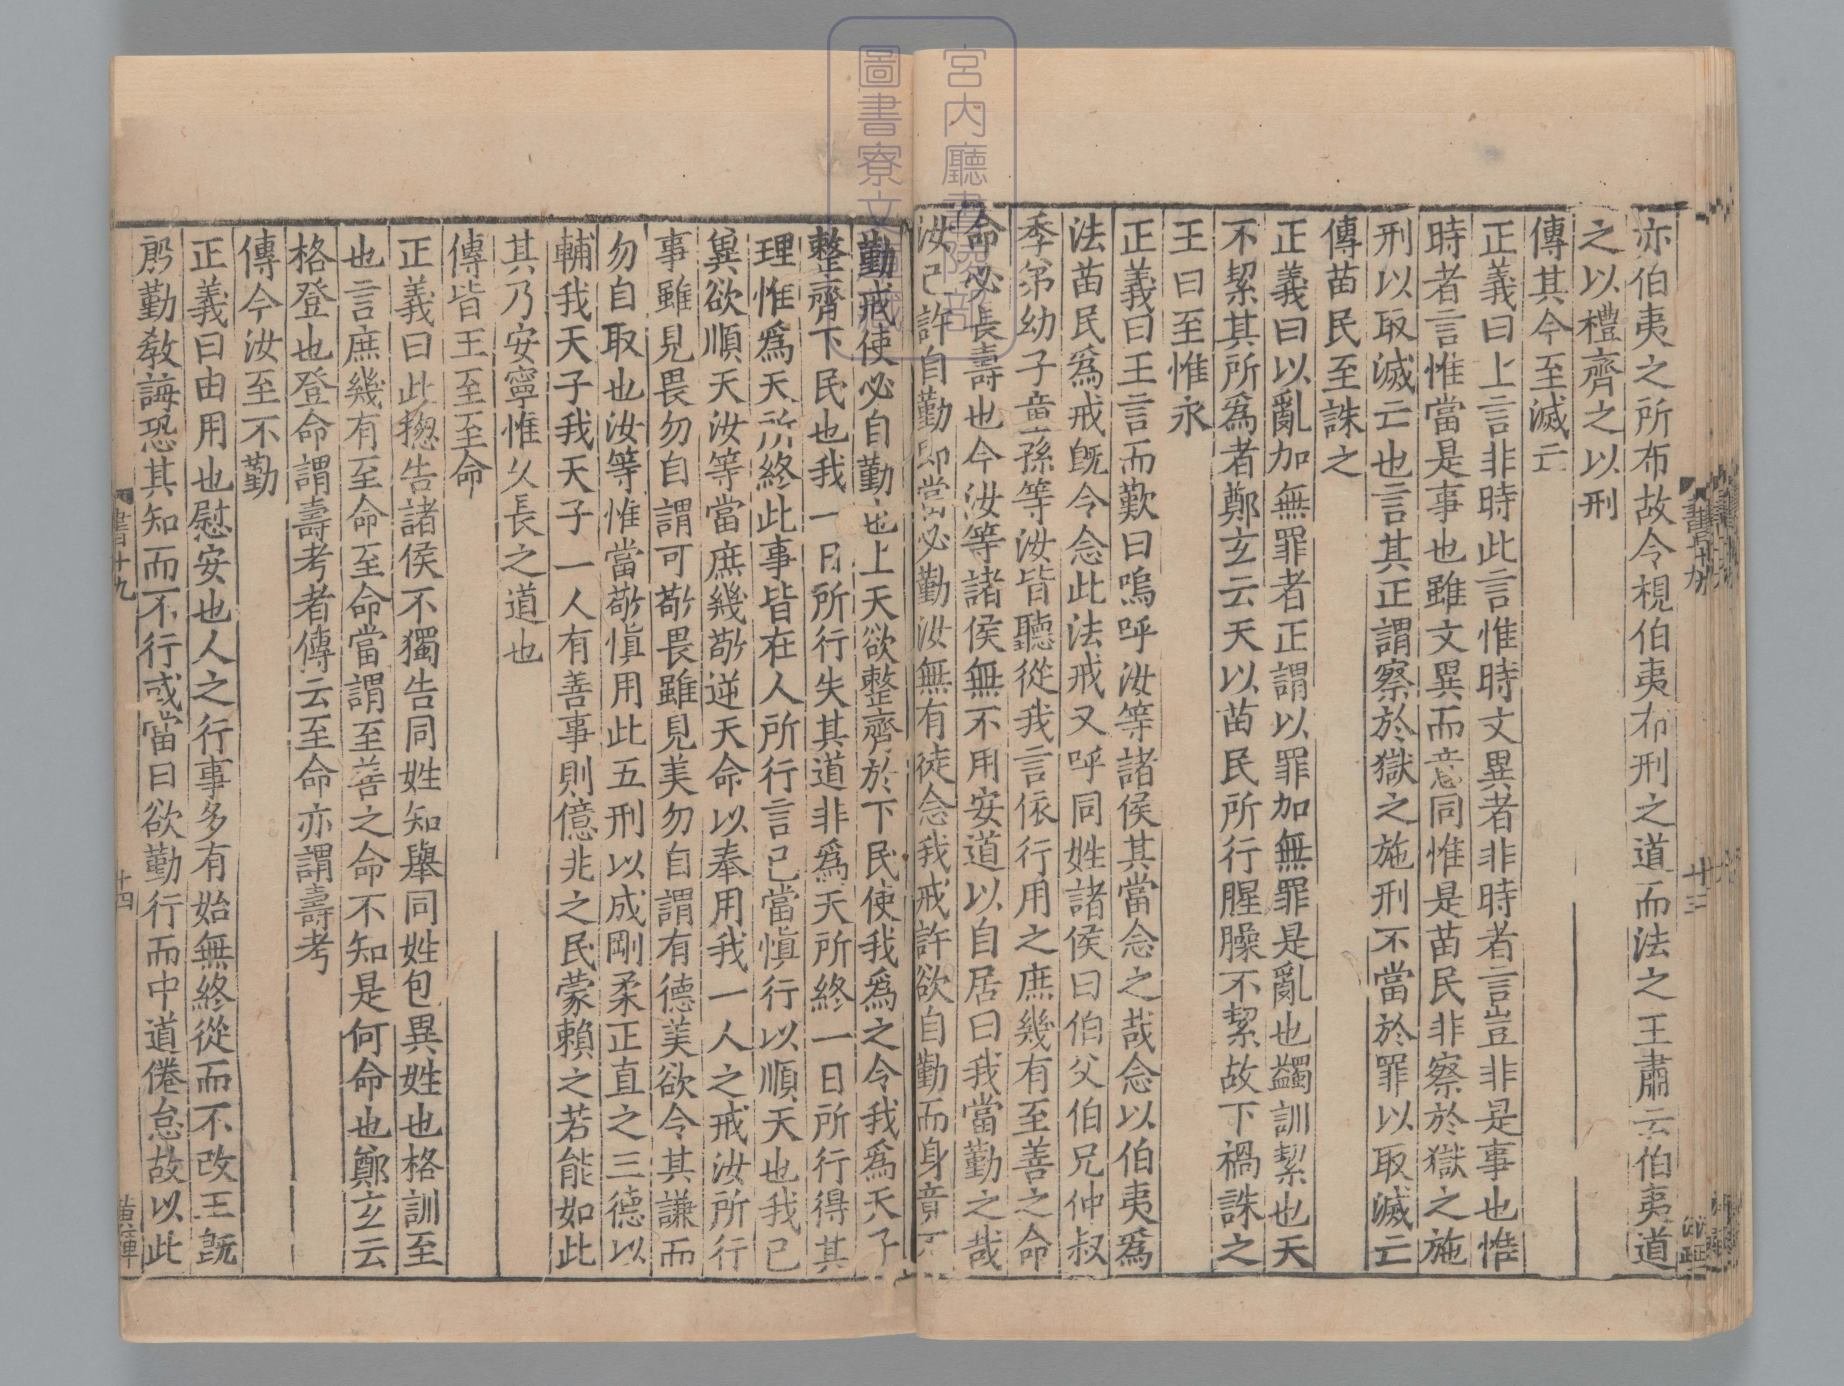 亦伯夷之所布故令視伯夷布刑之道而法之王肅云伯夷道
之以禮齊之以刑
傳其今至滅亡
正義曰上言非時此言惟時文異者非時者言豈非是事也惟
時者言惟當是事也雖文異而意同惟是苗民非察於獄之施
刑以取滅亡也言其正謂察於獄之施刑不當於罪以取滅亡
傳苗民至誅之
正義曰以亂加無罪者正謂以罪加無罪是亂也蠲訓絜也天
不絜其所爲者鄭玄云天以苗民所行腥臊不絜故下禍誅之
王曰至惟永
正義曰王言而歎曰嗚呼汝等諸侯其當念之哉念以伯夷爲
法苗民爲戒旣今念此法戒又呼同姓諸侯曰伯父伯兄仲叔
季弟幼子童孫等汝皆聽從我言依行用之庶幾有至善之命
命必長壽也今汝等諸侯無不用安道以自居曰我當勤之哉
汝已許自勤即當必勤汝無有徒念我戒許欲自勤而身竟不
勤戒使必自勤也上天欲整齊於下民使我爲之令我爲天子
整齊下民也我一日所行失其道非爲天所終一日所行得其
理惟爲天所終此事皆在人所行言己當愼行以順天也我已
冀欲順天汝等當庶幾敬逆天命以奉用我一人之戒汝所行
事雖見畏勿自謂可敬畏雖見美勿自謂有德美欲令其謙而
勿自取也汝等惟當敬愼用此五刑以成剛柔正直之三德以
輔我天子我天子一人有善事則億兆之民蒙賴之若能如此
其乃安寧惟久長之道也
傳皆王至至命
正義曰此揔告諸侯不獨告同姓知舉同姓包異姓也格訓至
也言庶幾有至命至命當謂至善之命不知是何命也鄭玄云
格登也登命謂壽考者傳云至命亦謂壽考
傳今汝至不勤
正義曰由用也慰安也人之行事多有始無終從而不改王旣
殷勤敎誨恐其知而不行或當曰欲勤行而中道倦怠故以此
書十九
十四
黄暉
書十九
十三
宮内廳書陵部
圖書寮文庫藏